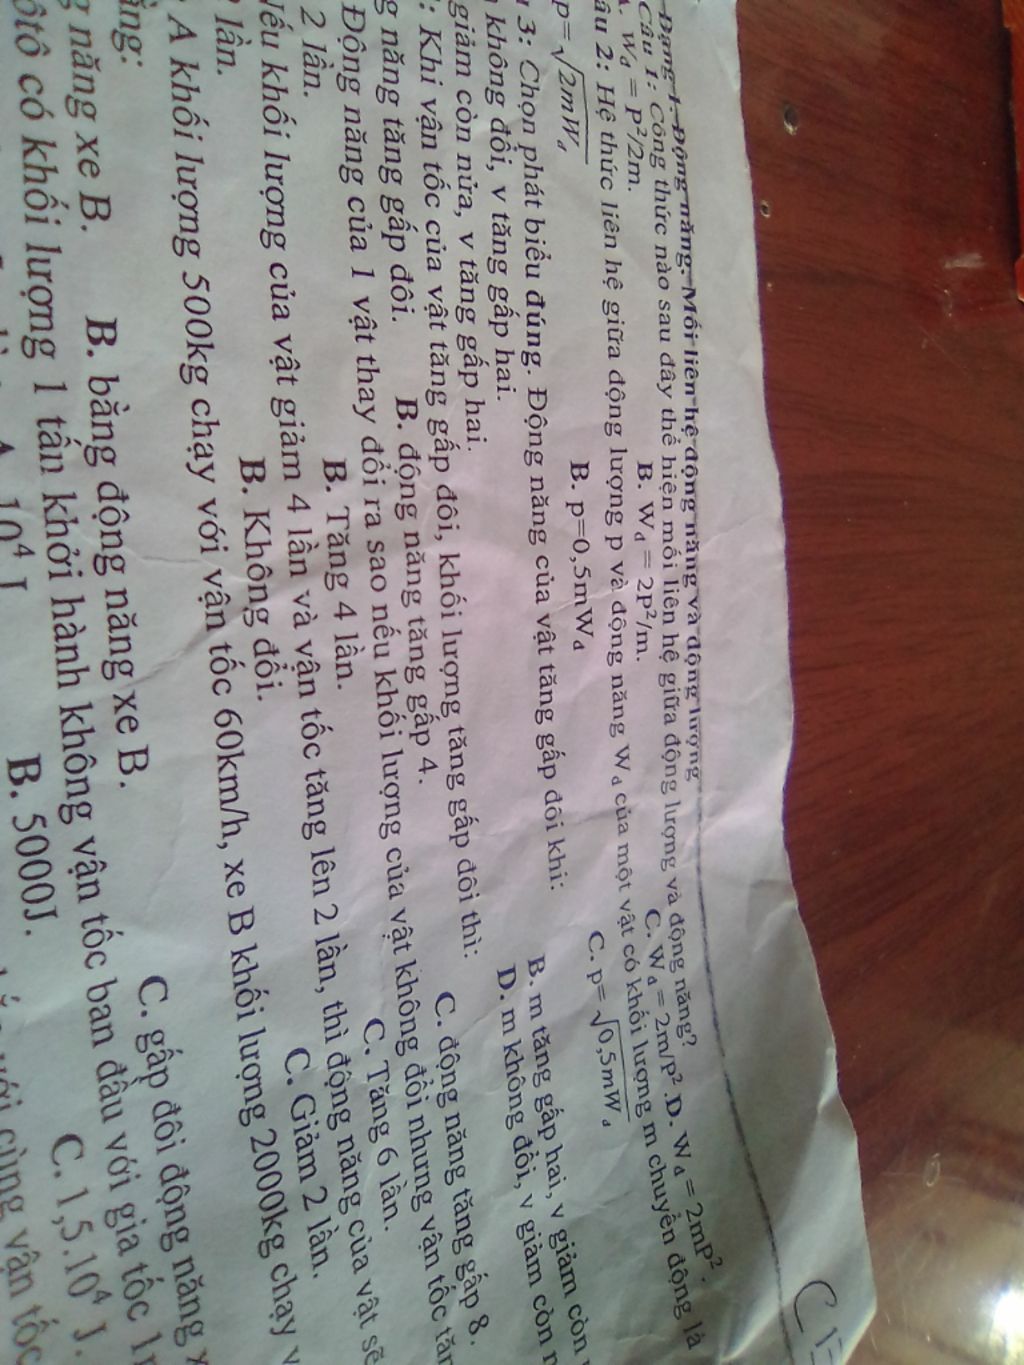 Dạng 1. Động năng. Mối liên hệ động năng và động lượng
Câu 1: Công thức nào sau đây thể hiện mối liên hệ giữa động lượng và động năng?
A. Wđ = P²/2m. B. Wđ = 2P²/m. C. Wđ = 2m/P². D. Wđ = 2mP².
âu 2: Hệ thức liên hệ giữa động lượng p và động năng Wđ của một vật có khối lượng m chuyển động là
p=√2mWđ B. p=0,5mWđ C. p=√0,5mWđ
3: Chọn phát biểu đúng. Động năng của vật tăng gấp đôi khi:
không đổi, v tăng gấp hai. B. m tăng gấp hai, v giảm còn
giảm còn nửa, v tăng gấp hai. D. m không đổi, v giảm còn
: Khi vận tốc của vật tăng gấp đôi, khối lượng tăng gấp đôi thì:
g năng tăng gấp đôi. B. động năng tăng gấp 4. C. động năng tăng gấp 8.
Động năng của 1 vật thay đổi ra sao nếu khối lượng của vật không đổi nhưng vận tốc tăn
2 lần. B. Tăng 4 lần. C. Tăng 6 lần.
Nếu khối lượng của vật giảm 4 lần và vận tốc tăng lên 2 lần, thì động năng của vật sẽ
lần. B. Không đổi. C. Giảm 2 lần.
A khối lượng 500kg chạy với vận tốc 60km/h, xe B khối lượng 2000kg chạy v
ằng:
g năng xe B. B. bằng động năng xe B. C. gấp đôi động năng x
ôtô có khối lượng 1 tấn khởi hành không vận tốc ban đầu với gia tốc 1
10⁴ J B. 5000J. C. 1,5.10⁴ J.
với cùng vận tốc